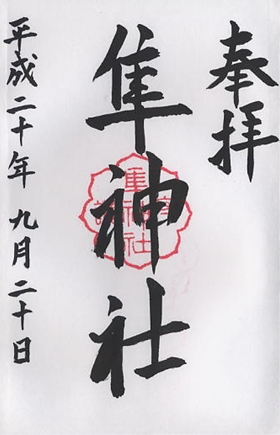 奉拝
隼神社
平成二十年 九月二十日